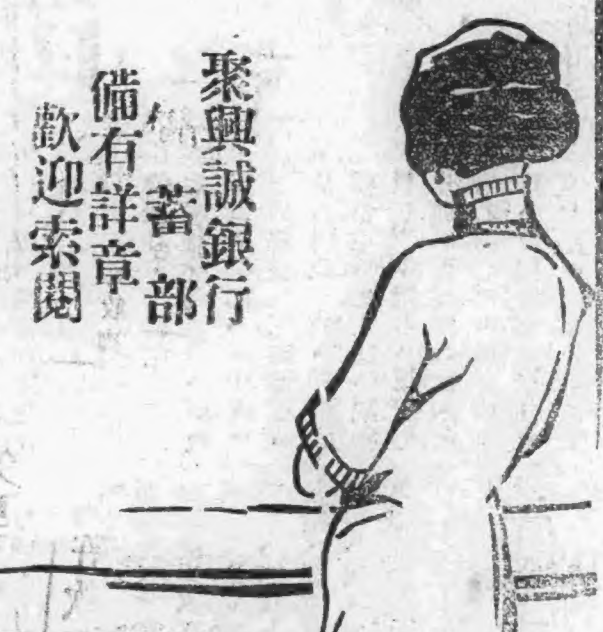 聚興誠銀行
蓄部
備有詳章
歡迎索閱